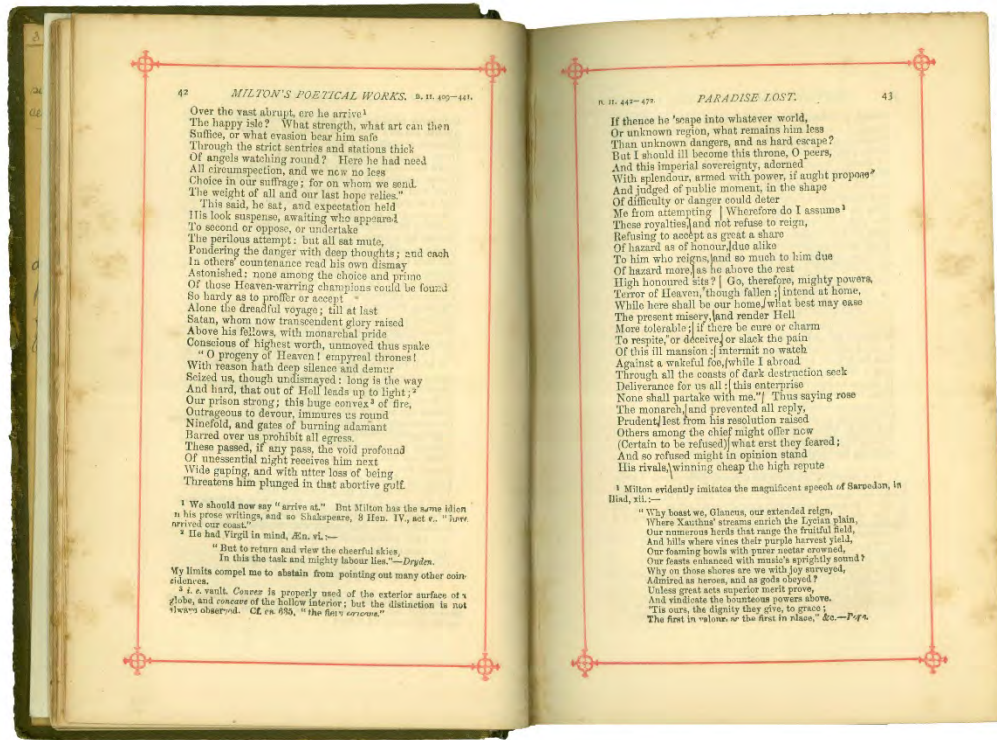 42 MILTON'S POETICAL WORKS. B. II. 409—441.
Over the vast abrupt, ere he arrive¹
The happy isle? What strength, what art can then
Suffice, or what evasion bear him safe
Through the strict sentries and stations thick
Of angels watching round? Here he had need
All circumspection, and we now no less
Choice in our suffrage; for on whom we send.
The weight of all and our last hope relies."
This said, he sat, and expectation held
His look suspense, awaiting who appeared
To second or oppose, or undertake
The perilous attempt: but all sat mute,
Pondering the danger with deep thoughts; and each
In others' countenance read his own dismay
Astonished: none among the choice and prime
Of those Heaven-warring champions could be found
So hardy as to proffer or accept
Alone the dreadful voyage; till at last
Satan, whom now transcendent glory raised
Above his fellows, with monarchal pride
Conscious of highest worth, unmoved thus spake
"O progeny of Heaven! empyreal thrones!
With reason hath deep silence and demur
Seized us, though undismayed: long is the way
And hard, that out of Hell leads up to light;²
Our prison strong; this huge convex³ of fire,
Outrageous to devour, immures us round
Ninefold, and gates of burning adamant
Barred over us prohibit all egress.
These passed, if any pass, the void profound
Of unessential night receives him next
Wide gaping, and with utter loss of being
Threatens him plunged in that abortive gulf.
¹ We should now say "arrive at." But Milton has the same idiom
n his prose writings, and so Shakspeare, 3 Hen. IV., act v. "have
arrived our coast."
² He had Virgil in mind, Æn. vi.:—
"But to return and view the cheerful skies,
In this the task and mighty labour lies."—Dryden.
My limits compel me to abstain from pointing out many other coin-
cidences.
³ i. e. vault. Convex is properly used of the exterior surface of a
globe, and concave of the hollow interior; but the distinction is not
always observed. Cf. 635, "the fiery concave."
B. II. 442—472. PARADISE LOST. 43
If thence he 'scape into whatever world,
Or unknown region, what remains him less
Than unknown dangers, and as hard escape?
But I should ill become this throne, O peers,
And this imperial sovereignty, adorned
With splendour, armed with power, if aught propose
And judged of public moment, in the shape
Of difficulty or danger could deter
Me from attempting Wherefore do I assume¹
These royalties, and not refuse to reign,
Refusing to accept as great a share
Of hazard as of honour, due alike
To him who reigns, and so much to him due
Of hazard more, as he above the rest
High honoured sits? Go, therefore, mighty powers,
Terror of Heaven, though fallen; intend at home,
While here shall be our home, what best may ease
The present misery, and render Hell
More tolerable; if there be cure or charm
To respite, or deceive, or slack the pain
Of this ill mansion: intermit no watch
Against a wakeful foe, while I abroad
Through all the coasts of dark destruction seek
Deliverance for us all: this enterprise
None shall partake with me." Thus saying rose
The monarch, and prevented all reply,
Prudent, lest from his resolution raised
Others among the chief might offer now
(Certain to be refused) what erst they feared;
And so refused might in opinion stand
His rivals, winning cheap the high repute
¹ Milton evidently imitates the magnificent speech of Sarpedon, in
Iliad, xii.:—
"Why boast we, Glaucus, our extended reign,
Where Xanthus' streams enrich the Lycian plain,
Our numerous herds that range the fruitful field,
And hills where vines their purple harvest yield,
Our foaming bowls with purer nectar crowned,
Our feasts enhanced with music's sprightly sound?
Why on those shores are we with joy surveyed,
Admired as heroes, and as gods obeyed?
Unless great acts superior merit prove,
And vindicate the bounteous powers above.
'Tis ours, the dignity they give, to grace;
The first in valour, as the first in place," &c.—Pope.